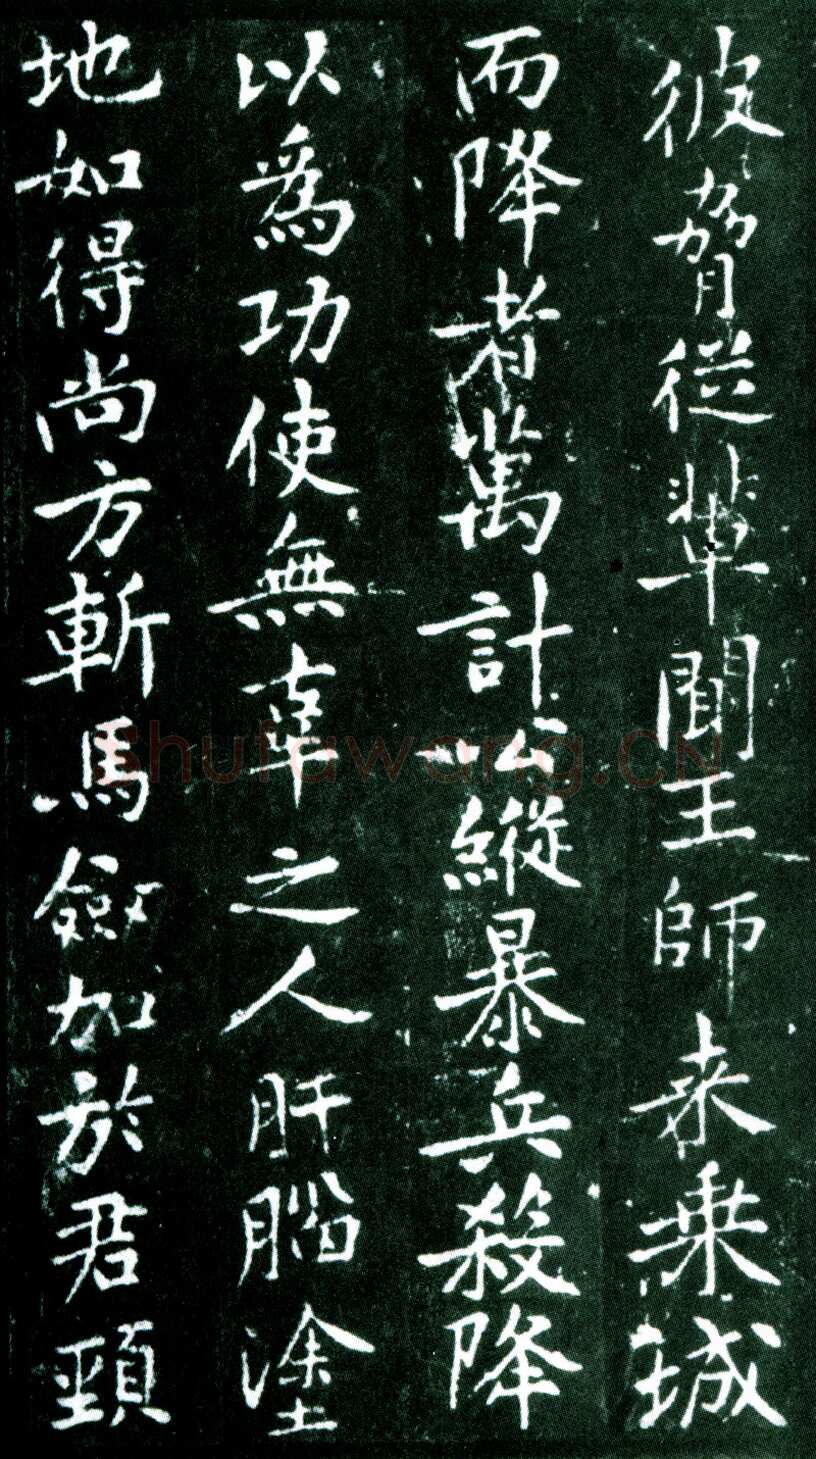 彼脅從輩聞王師来乗城
而降者萬計公縱暴兵殺降
以為功使無辜之人肝腦塗
地如得尚方斬馬劒加於君頸
shufawang.CN